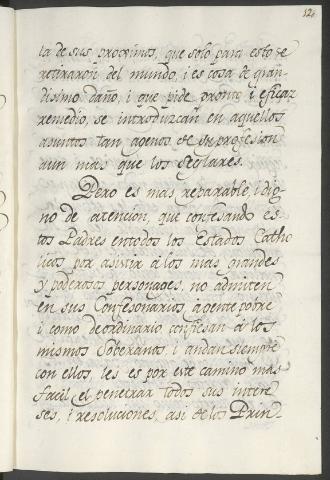 12
la de sus proximos, que solo para esto se
retiraron del mundo, i es cosa de gran
disimo daño, i que pide pronto i eficaz
remedio, se introduzcan en aquellos
asuntos tan agenos de su profesion
aun mas que los seglares.
Pero es mas reparable, i dig-
no de atencion, que confesando es-
tos Padres en todos los Estados Catho
licos por asistir á los mas grandes
y poderosos personages, no admiten
en sus Confesonarios á gente pobre
i como de ordinario confiesan á los
mismos Soberanos, i andan siempre
con ellos, les es por este camino mas
facil el penetrar todos sus intere
ses, i resoluciones, asi de los Prin-